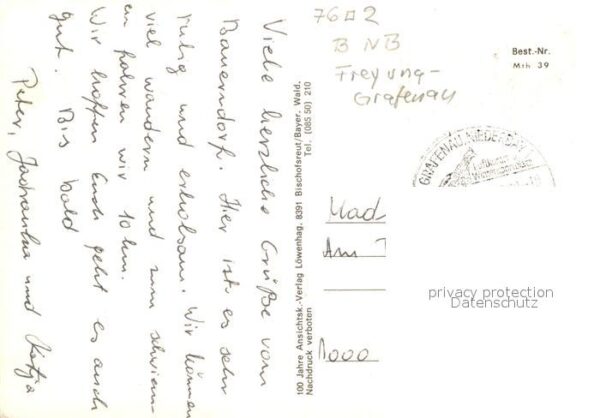 Viele herzliche Grüße vom
Bauerndorf. Hier ist es sehr
ruhig und erholsam. Wir können
viel wandern und zum schwim-
en fahren wir 10 km.
Wir hoffen Euch geht es auch
gut. Bis bald
Peter, und Katja
100 Jahre Ansichtsk.-Verlag Löwenhag, 8391 Bischofsreut/Bayer. Wald.
Nachdruck verboten Tel. (085 50) 210
76 2
BNB
Freyung-
Grafenau
Best.-Nr.
Mth 39
GRAFENAU, NIEDERBAY
Mad
Am
1000
privacy protection
Datenschutz